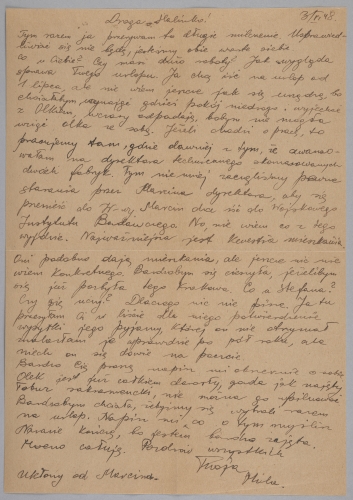 Droga Halinko! 3/VI 48.
Tym razem ja przerywam to długie milczenie. Usprawied-
liwiać się nie będę, jesteśmy obie warte siebie
co u Ciebie? Czy masz dużo roboty? Jak wygląda
sprawa Twego urlopu. Ja chcę iść na urlop od
1 lipca, ale nie wiem jeszcze jak się urządzę, bo
chciałabym wynająć gdzieś pokój niedrogo i wyjechać
z Olkiem, wczasy odpadają, bobym nie mogła
wziąć Olka ze sobą. Jeżeli chodzi o pracę, to
pracujemy tam, gdzie dawniej z tym, że awanso-
wałam na dyrektora technicznego skomasowanych
dwóch fabryk. Tym nie mniej zaczęliśmy pewne
starania przez Marcina dyrektora, aby się
przenieść do W-wy, Marcin chce iść do Wojskowego
Instytutu Badawczego. No, nie wiem co z tego
wyjdzie. Najważniejsza jest kwestia mieszkania.
Oni podobno dają mieszkania, ale jeszcze nic nie
wiem konkretnego. Bardzobym się cieszyła, jeślibym
się już pozbyła tego Krakowa. Co u Stefana?
Czy się uczy? Dlaczego nic nie pisze. Ja tu
przesyłam Ci w liście dla niego potwierdzenie
wysyłki jego pyjamy, której on nie otrzymał
znalazłam je wprawdzie po pół roku, ale
niech on się dowie na poczcie.
Bardzo Cię proszę napisz mi obszernie o sobie
Olek jest już całkiem dorosły, gada jak najęty
łobuz, nie można go upilnować
Bardzobym chciała, żebyśmy się wybrali razem
na urlop. Napisz mi co o tym myślisz
Narazie kończę, bo jestem bardzo zajęta.
Mocno całuję. Pozdrów wszystkich
Twoja
Mila.
Ukłony od Marcina.